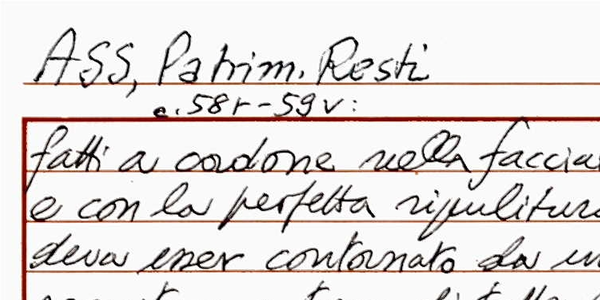 ASS, Patrim. Resti
c. 58r - 59v:
fatti a cordone nella faccia
e con la perfetta ripulitura
deva esser contornato da un